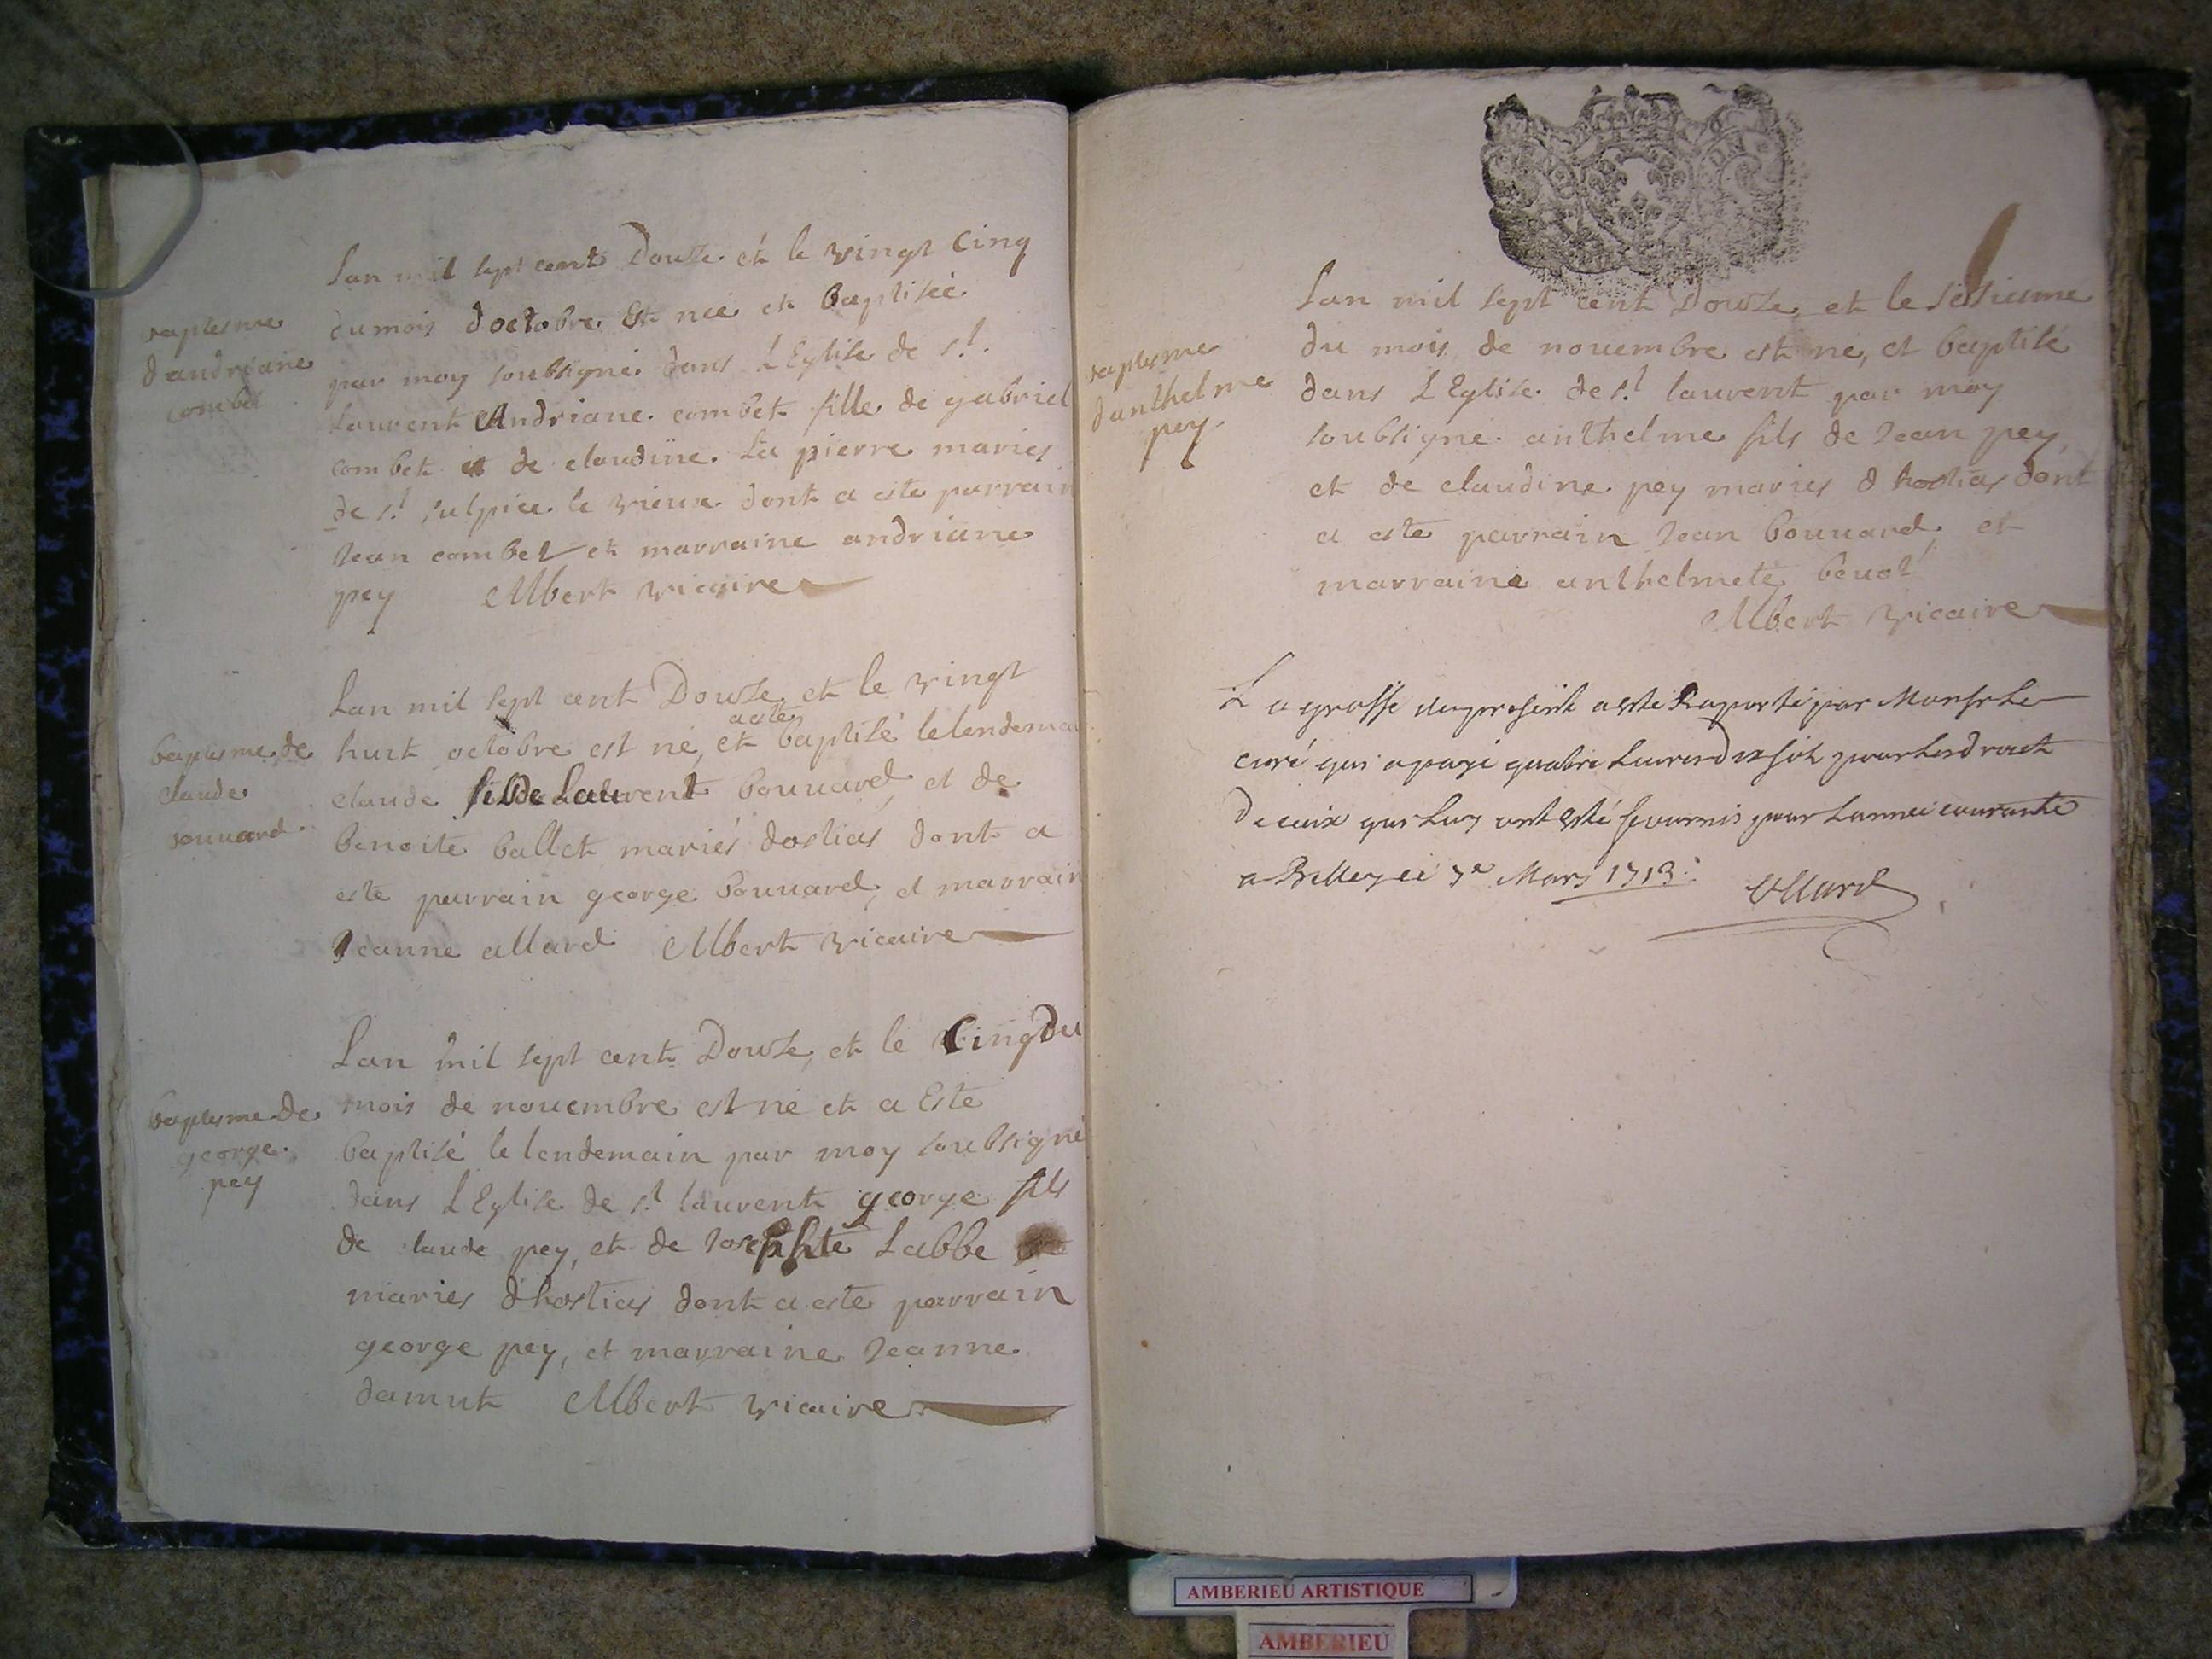 Lan mil sept cent Douse et le vingt Cinq
baptesme
dandriane
combet
du mois doctobre Est neé et Baptiseé
par moy soubsigné dans L Eglise de st.
Laurent Andriane combet fille de gabriel
combet et de claudine La pierre mariés
de st sulpice le vieux dont a este parrain
Jean combet et marraine andriane
pey Albert vicaire
Lan mil sept cent Douse et le vingt
baptesme de
claude
bouuard
a esté
huit octobre est né, et baptisé le lendemain
claude fils de Laurent bouuard et de
benoite ballet mariés dostias dont a
este parrain george bouuard, et marrain
Jeanne allard Albert vicaire
Lan mil sept cent Douse, et le Cinq du
baptesme de
george
pey
mois de nouembre est né et a Esté
baptisé le lendemain par moy soubsigné
dans L Eglise de st laurent george fils
de claude pey, et de Josephte Labbe
mariés dhostias dont a este parrain
george pey, et marraine Jeanne
damut Albert vicaire
Lan mil sept cent Douse et le
baptesme
danthelme
pey
du mois de nouembre est né, et baptisé
dans L Eglise de st laurent par moy
soubsigne anthelme fils de Jean pey
et de claudine pey mariés d hostias dont
a este parrain Jean bouuard et
marraine anthelmete
Albert vicaire
La grosse du present a esté Raporté par Monsr Le
curé qui a payé quatre Liures dix sols pour Les droict
De ceux qui Luy ont esté fournis pour Lannée courante
a Belley ce 3e Mars 1713
AMBERIEU ARTISTIQUE
AMBERIEU